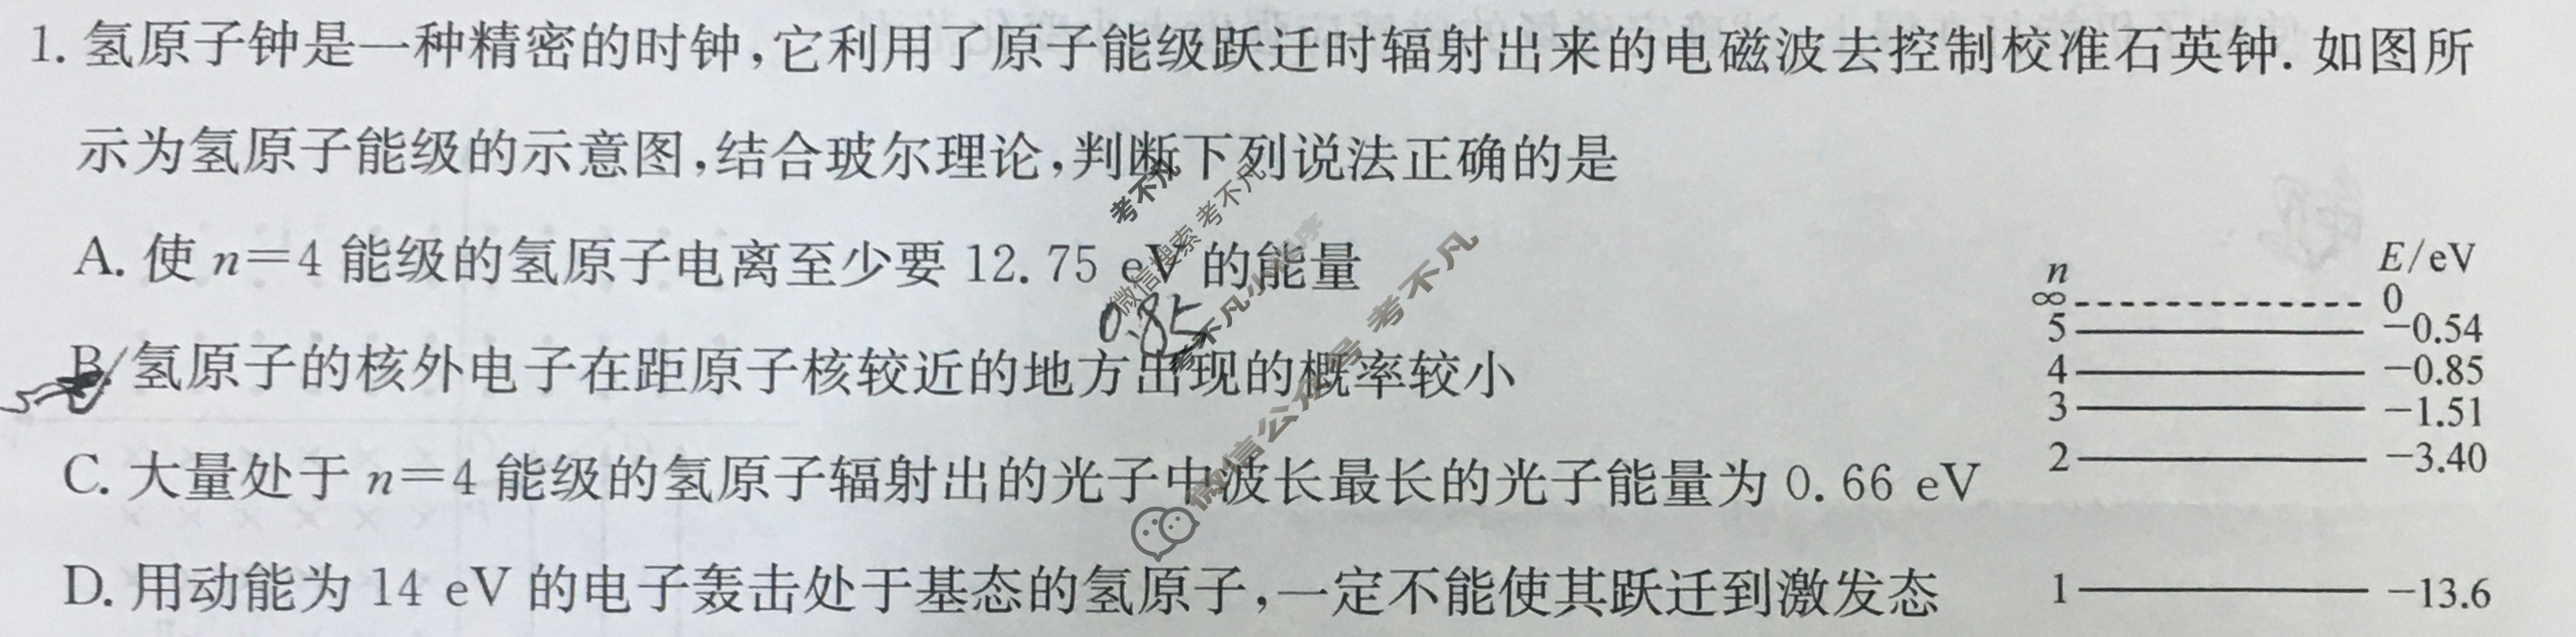 1. 氢原子钟是一种精密的时钟,它利用了原子能级跃迁时辐射出来的电磁波去控制校准石英钟. 如图所
示为氢原子能级的示意图,结合玻尔理论,判断下列说法正确的是
A. 使 n=4 能级的氢原子电离至少要 12.75 eV 的能量
0.85
B. 氢原子的核外电子在距原子核较近的地方出现的概率较小
C. 大量处于 n=4 能级的氢原子辐射出的光子中波长最长的光子能量为 0.66 eV
D. 用动能为 14 eV 的电子轰击处于基态的氢原子,一定不能使其跃迁到激发态
n E/eV
∞ 0
5 -0.54
4 -0.85
3 -1.51
2 -3.40
1 -13.6
考不凡
微信搜索 考不凡
考不凡小程序
微信公众号 考不凡